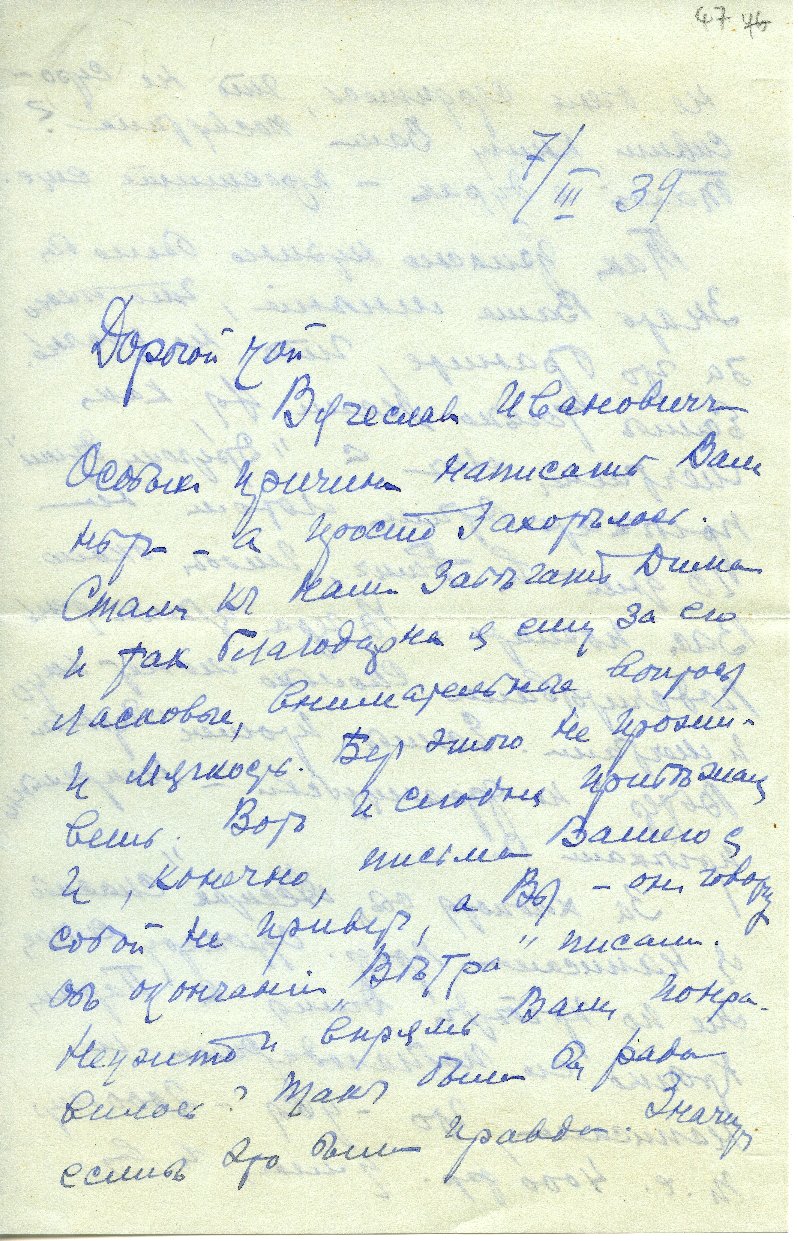 47 46
7/III 39
Дорогой мой
Вячеславъ Ивановичъ
Особыхъ причинъ написать Вамъ
нѣтъ – а просто захотѣлось.
Сталъ къ намъ забѣгать Дима
и такъ благодарна я ему за его
ласковые, внимательные вопросы
и мягкость. Безъ этого не прожи-
вешь. Вотъ и сегодня прибѣжалъ
и, конечно, письма Вашего съ
собой не привезъ, а Вы – онъ говоритъ
объ окончаніи "Вѣтра" писали.
Неужто и впрямь Вамъ понра-
вилось? Такъ была бы рада
еслибъ это была правда. Значитъ